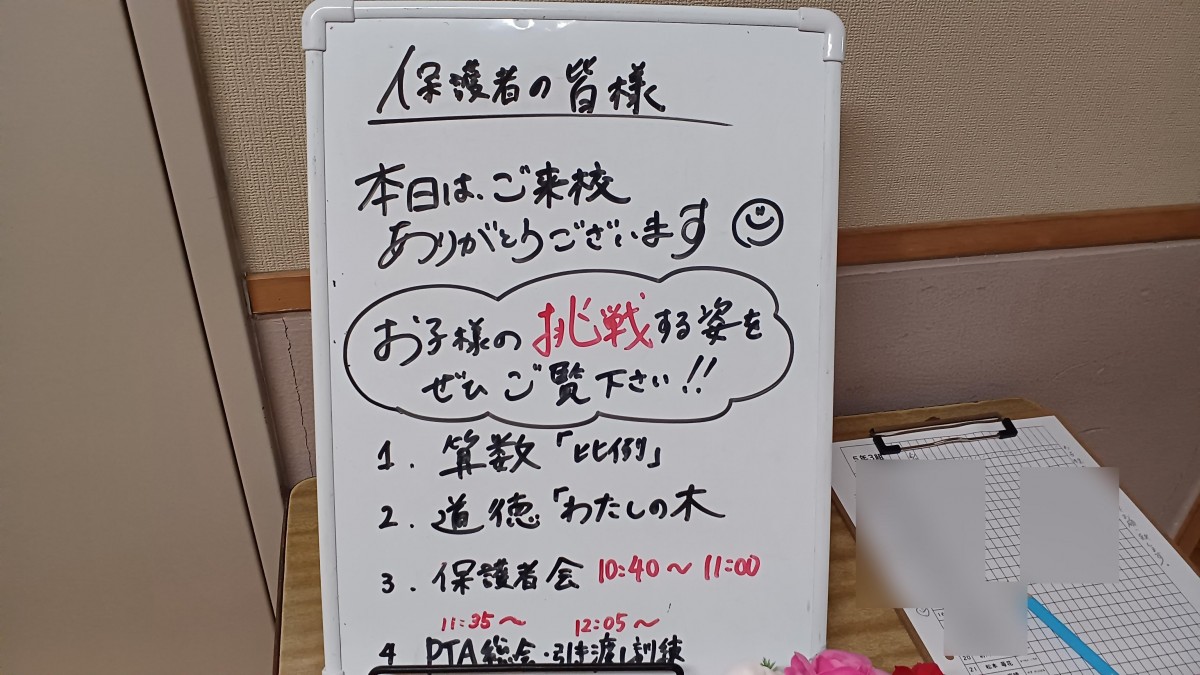 保護者の皆様
本日は、ご来校
ありがとうございます
お子様の挑戦する姿を
ぜひご覧下さい!!
1. 算数「比例」
2. 道徳「わたしの木
3. 保護者会 10:40〜11:00
11:35〜 12:05〜
4 PTA総会・引き渡し訓練
5年3組
20
21